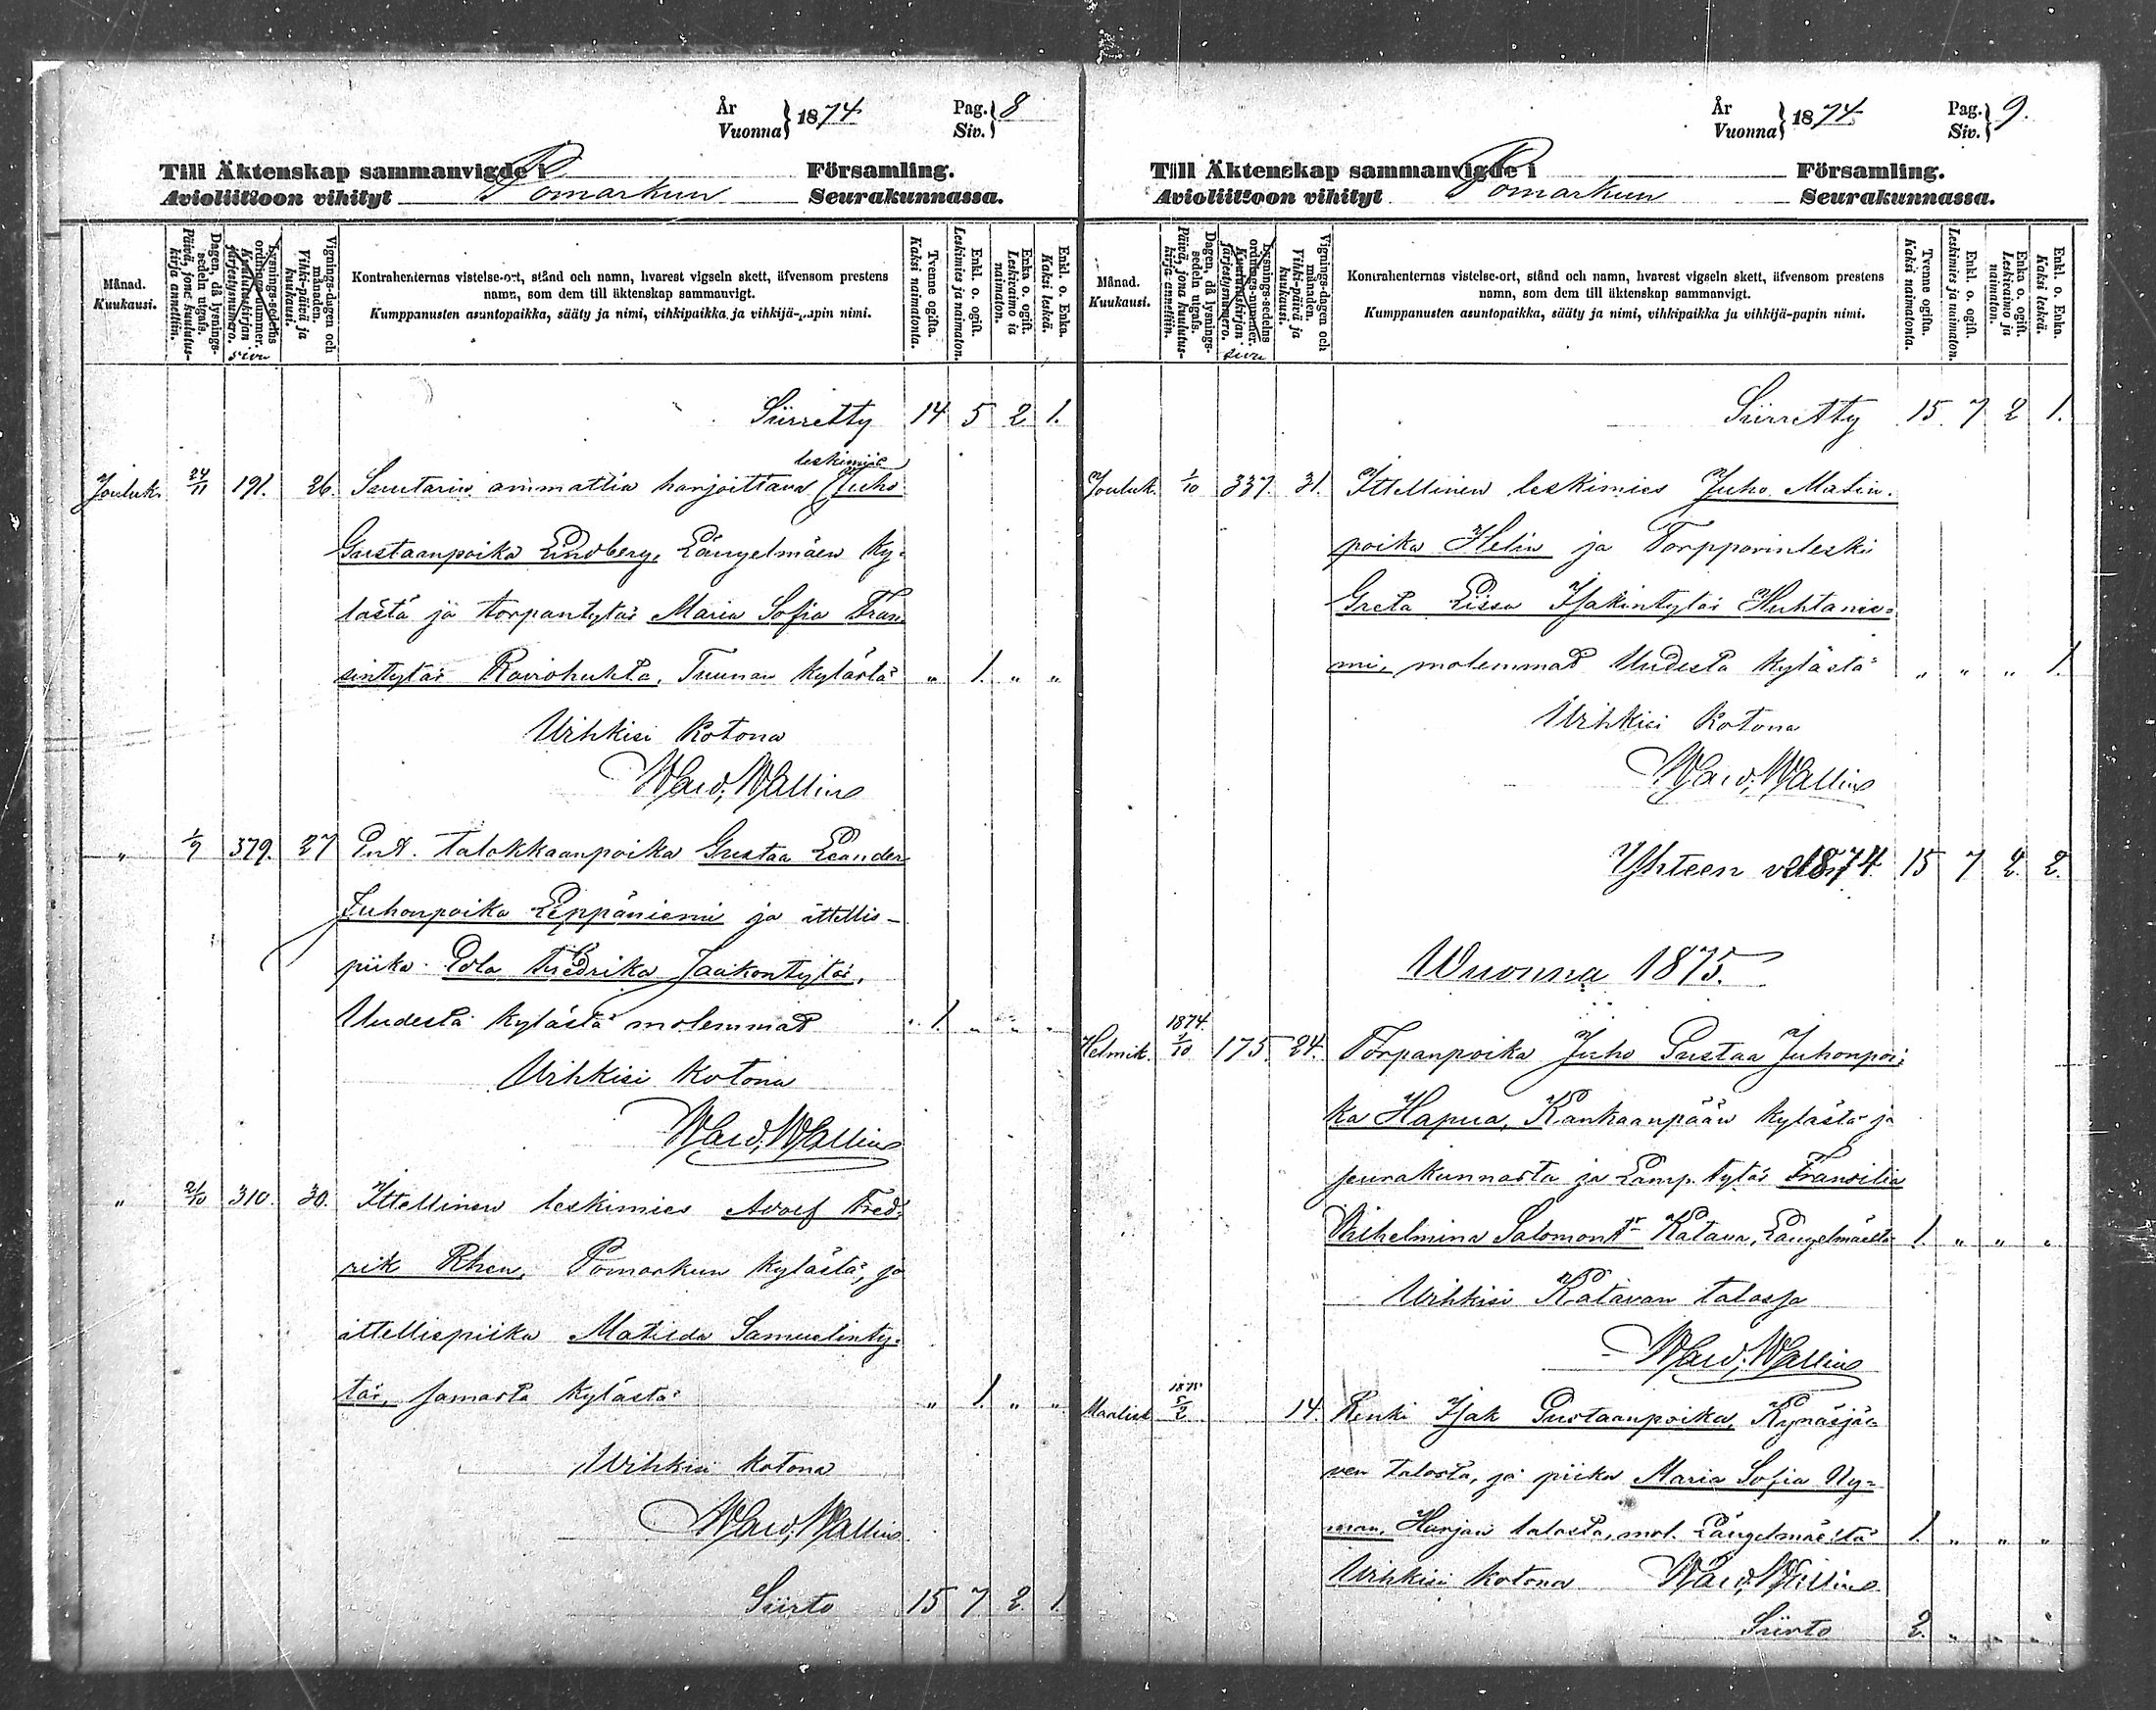 År
Vuonna } 1874 Pag. Siv. } 8
Till Äktenskap sammanvigde i Församling.
Avioliittoon vihityt Pomarkun Seurakunnassa.
Månad.
Kuukausi.
Dagen, då lysnings-sedeln utgafs.
Päivä, jona kuulutus-kirja annettiin.
Lysnings-sedelns ordnings-nummer.
Kuulutuskirjan järjestysnumero.
sivu
Vignings-dagen och månaden.
Vihki-päivä ja kuukausi.
Kontrahenternas vistelse-ort, stånd och namn, hvarest vigseln skett, äfvensom prestens
namn, som dem till äktenskap sammanvigt.
Kumppanusten asuntopaikka, sääty ja nimi, vihkipaikka ja vihkijä-papin nimi.
Tvenne ogifta.
Kaksi naimatonta.
Enkl. o. ogift.
Leskimies ja naimaton.
Enka o. ogift.
Leskivaimo ja naimaton.
Enkl. o. Enka.
Kaksi leskeä.
Siirretty 14 5 2 1.
leskimies
Jouluk. 24/11 191. 26. Suutarin ammattia harjoittava Juho
Gustaanpoika Lindberg, Längelmäen ky-
lästä ja torpantytär Maria Sofia Fran-
sintytär Raiviohuhta, Tuunan kylästä " 1. " "
Vihkisi kotona
Ward. Wallin
" 1/7 379. 27 Ent. talokkaanpoika Gustaa Leander
Juhonpoika Leppäniemi ja ittellis-
piika Eola Fredrika Jaakontytär,
Uudesta kylästä molemmat " 1. " " "
Vihkisi kotona
Ward. Wallin
" 2/10 310. 30. Ittellinen leskimies Adolf Fred-
rik Rhen, Pomarkun kylästä, ja
ittellispiika Matilda Samuelinty-
tär, samasta kylästä " 1. " "
Vihkisi kotona
Ward. Wallin
Siirto 15 7 2. 1.
År
Vuonna } 1874 Pag. Siv. } 9.
Till Äktenskap sammanvigde i Församling.
Avioliittoon vihityt Pomarkun Seurakunnassa.
Månad.
Kuukausi.
Dagen, då lysnings-sedeln utgafs.
Päivä, jona kuulutus-kirja annettiin.
Lysnings-sedelns ordnings-nummer.
Kuulutuskirjan järjestysnumero.
sivu
Vignings-dagen och månaden.
Vihki-päivä ja kuukausi.
Kontrahenternas vistelse-ort, stånd och namn, hvarest vigseln skett, äfvensom prestens
namn, som dem till äktenskap sammanvigt.
Kumppanusten asuntopaikka, sääty ja nimi, vihkipaikka ja vihkijä-papin nimi.
Tvenne ogifta.
Kaksi naimatonta.
Enkl. o. ogift.
Leskimies ja naimaton.
Enka o. ogift.
Leskivaimo ja naimaton.
Enkl. o. Enka.
Kaksi leskeä.
Siirretty 15. 7 2 1.
Jouluk. 1/10 337. 31. Ittellinen leskimies Juho Matin-
poika Helin ja Torpparinleski
Greta Liisa Isakintytär Huhtanie-
mi, molemmat Uudesta kylästä " " " 1.
Vihkisi kotona
Ward. Wallin
Yhteen v. 1874 15 7 2. 2.
Wuonna 1875.
1874.
Helmik. 1/10 175. 24. Torpanpoika Juho Gustaa Juhonpoi-
ka Hapua, Kankaanpään kylästä ja
seurakunnasta ja Lamp. tytär Fransilia
Wilhelmina Salomont:r Katava, Längelmäeltä 1. " " "
Vihkisi Katavan talossa
Ward. Wallin
1875
Maalisk. 5/2 14. Renki Isak Gustaanpoika, Kynäsjär-
ven talosta, ja piika Maria Sofia Ny-
man, Harjan talosta, mol. Längelmäeltä 1. " " "
Vihkisi kotona Ward. Wallin
Siirto 2. " " "